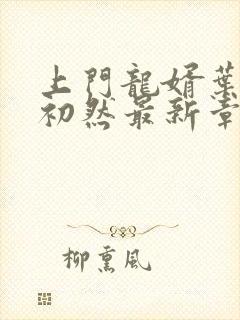 上門龍婿葉
初然最新章
柳熏風